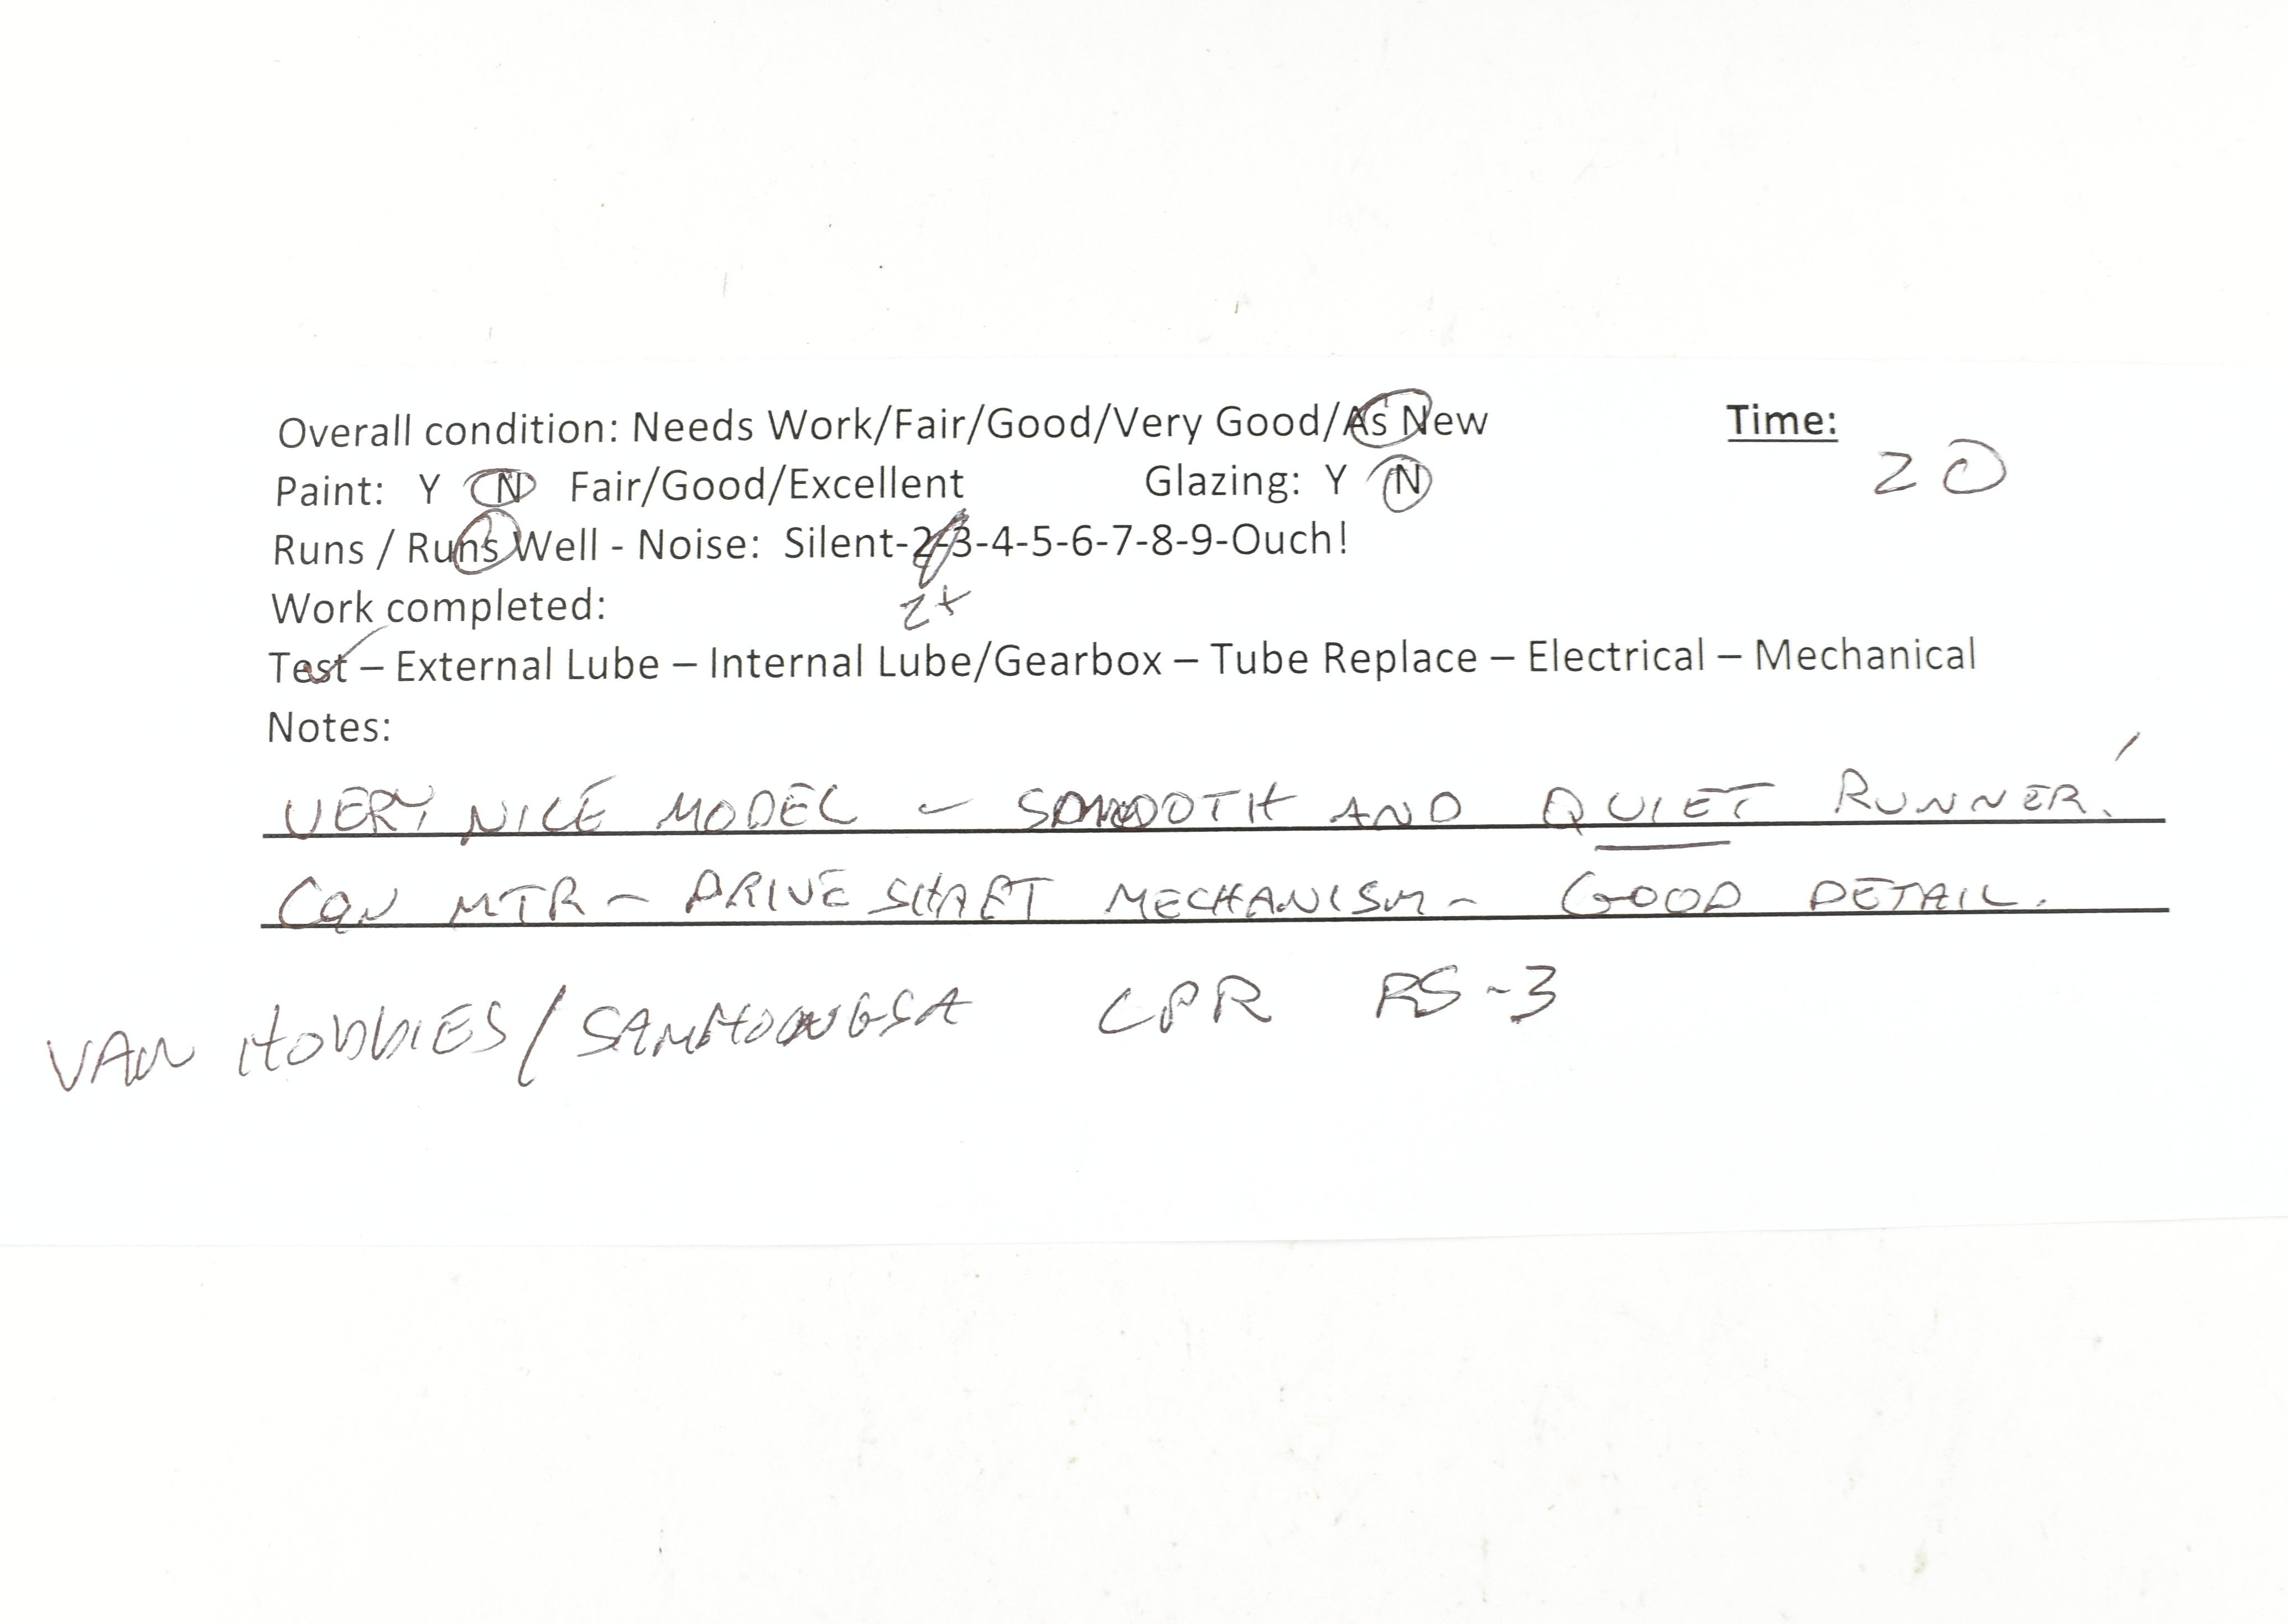 Overall condition: Needs Work/Fair/Good/Very Good/As New Time:
20
Paint: Y N Fair/Good/Excellent Glazing: Y N
Runs / Runs Well - Noise: Silent-2-3-4-5-6-7-8-9-Ouch!
Work completed: 2+
Test – External Lube – Internal Lube/Gearbox – Tube Replace – Electrical – Mechanical
Notes:
VERY NICE MODEL - SMOOTH AND QUIET RUNNER!
CAN MTR - DRIVE SHAFT MECHANISM - GOOD DETAIL.
VAN HOBBIES/SAMHONGSA CPR RS-3